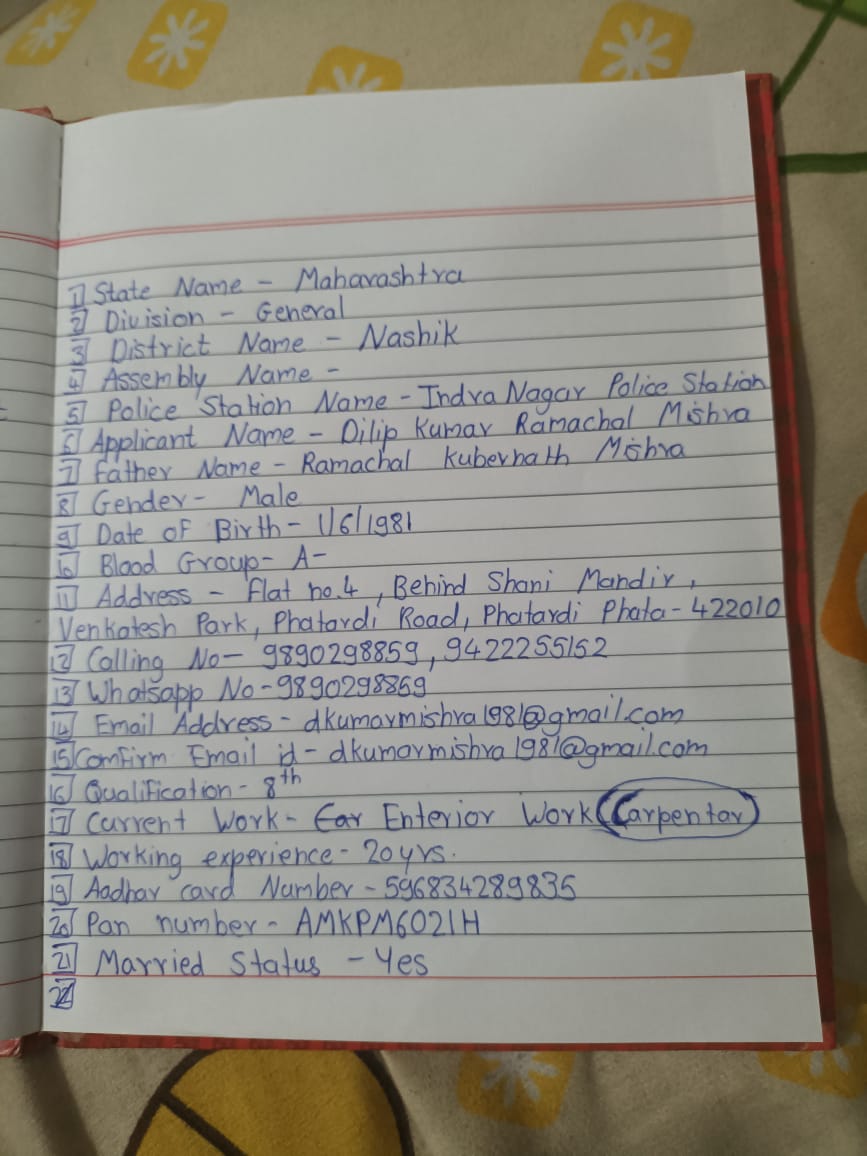 1] State Name - Maharashtra
2] Division - General
3] District Name - Nashik
4] Assembly Name -
5] Police Station Name - Indra Nagar Police Station
6] Applicant Name - Dilip Kumar Ramachal Mishra
7] Father Name - Ramachal Kubernath Mishra
8] Gender - Male
9] Date of Birth - 1/6/1981
10] Blood Group - A-
11] Address - Flat no.4, Behind Shani Mandir,
Venkatesh Park, Phatardi Road, Phatardi Phata - 422010
12] Calling No - 9890298859, 9422255152
13] Whatsapp No - 9890298859
14] Email Address - dkumarmishra1981@gmail.com
15] Comfirm Email id - dkumarmishra1981@gmail.com
16] Qualification - 8th
17] Current Work - Car Enterior Work (Carpentar)
18] Working experience - 20 yrs.
19] Aadhar card Number - 596834289835
20] Pan number - AMKPM6021H
21] Married Status - Yes
22]